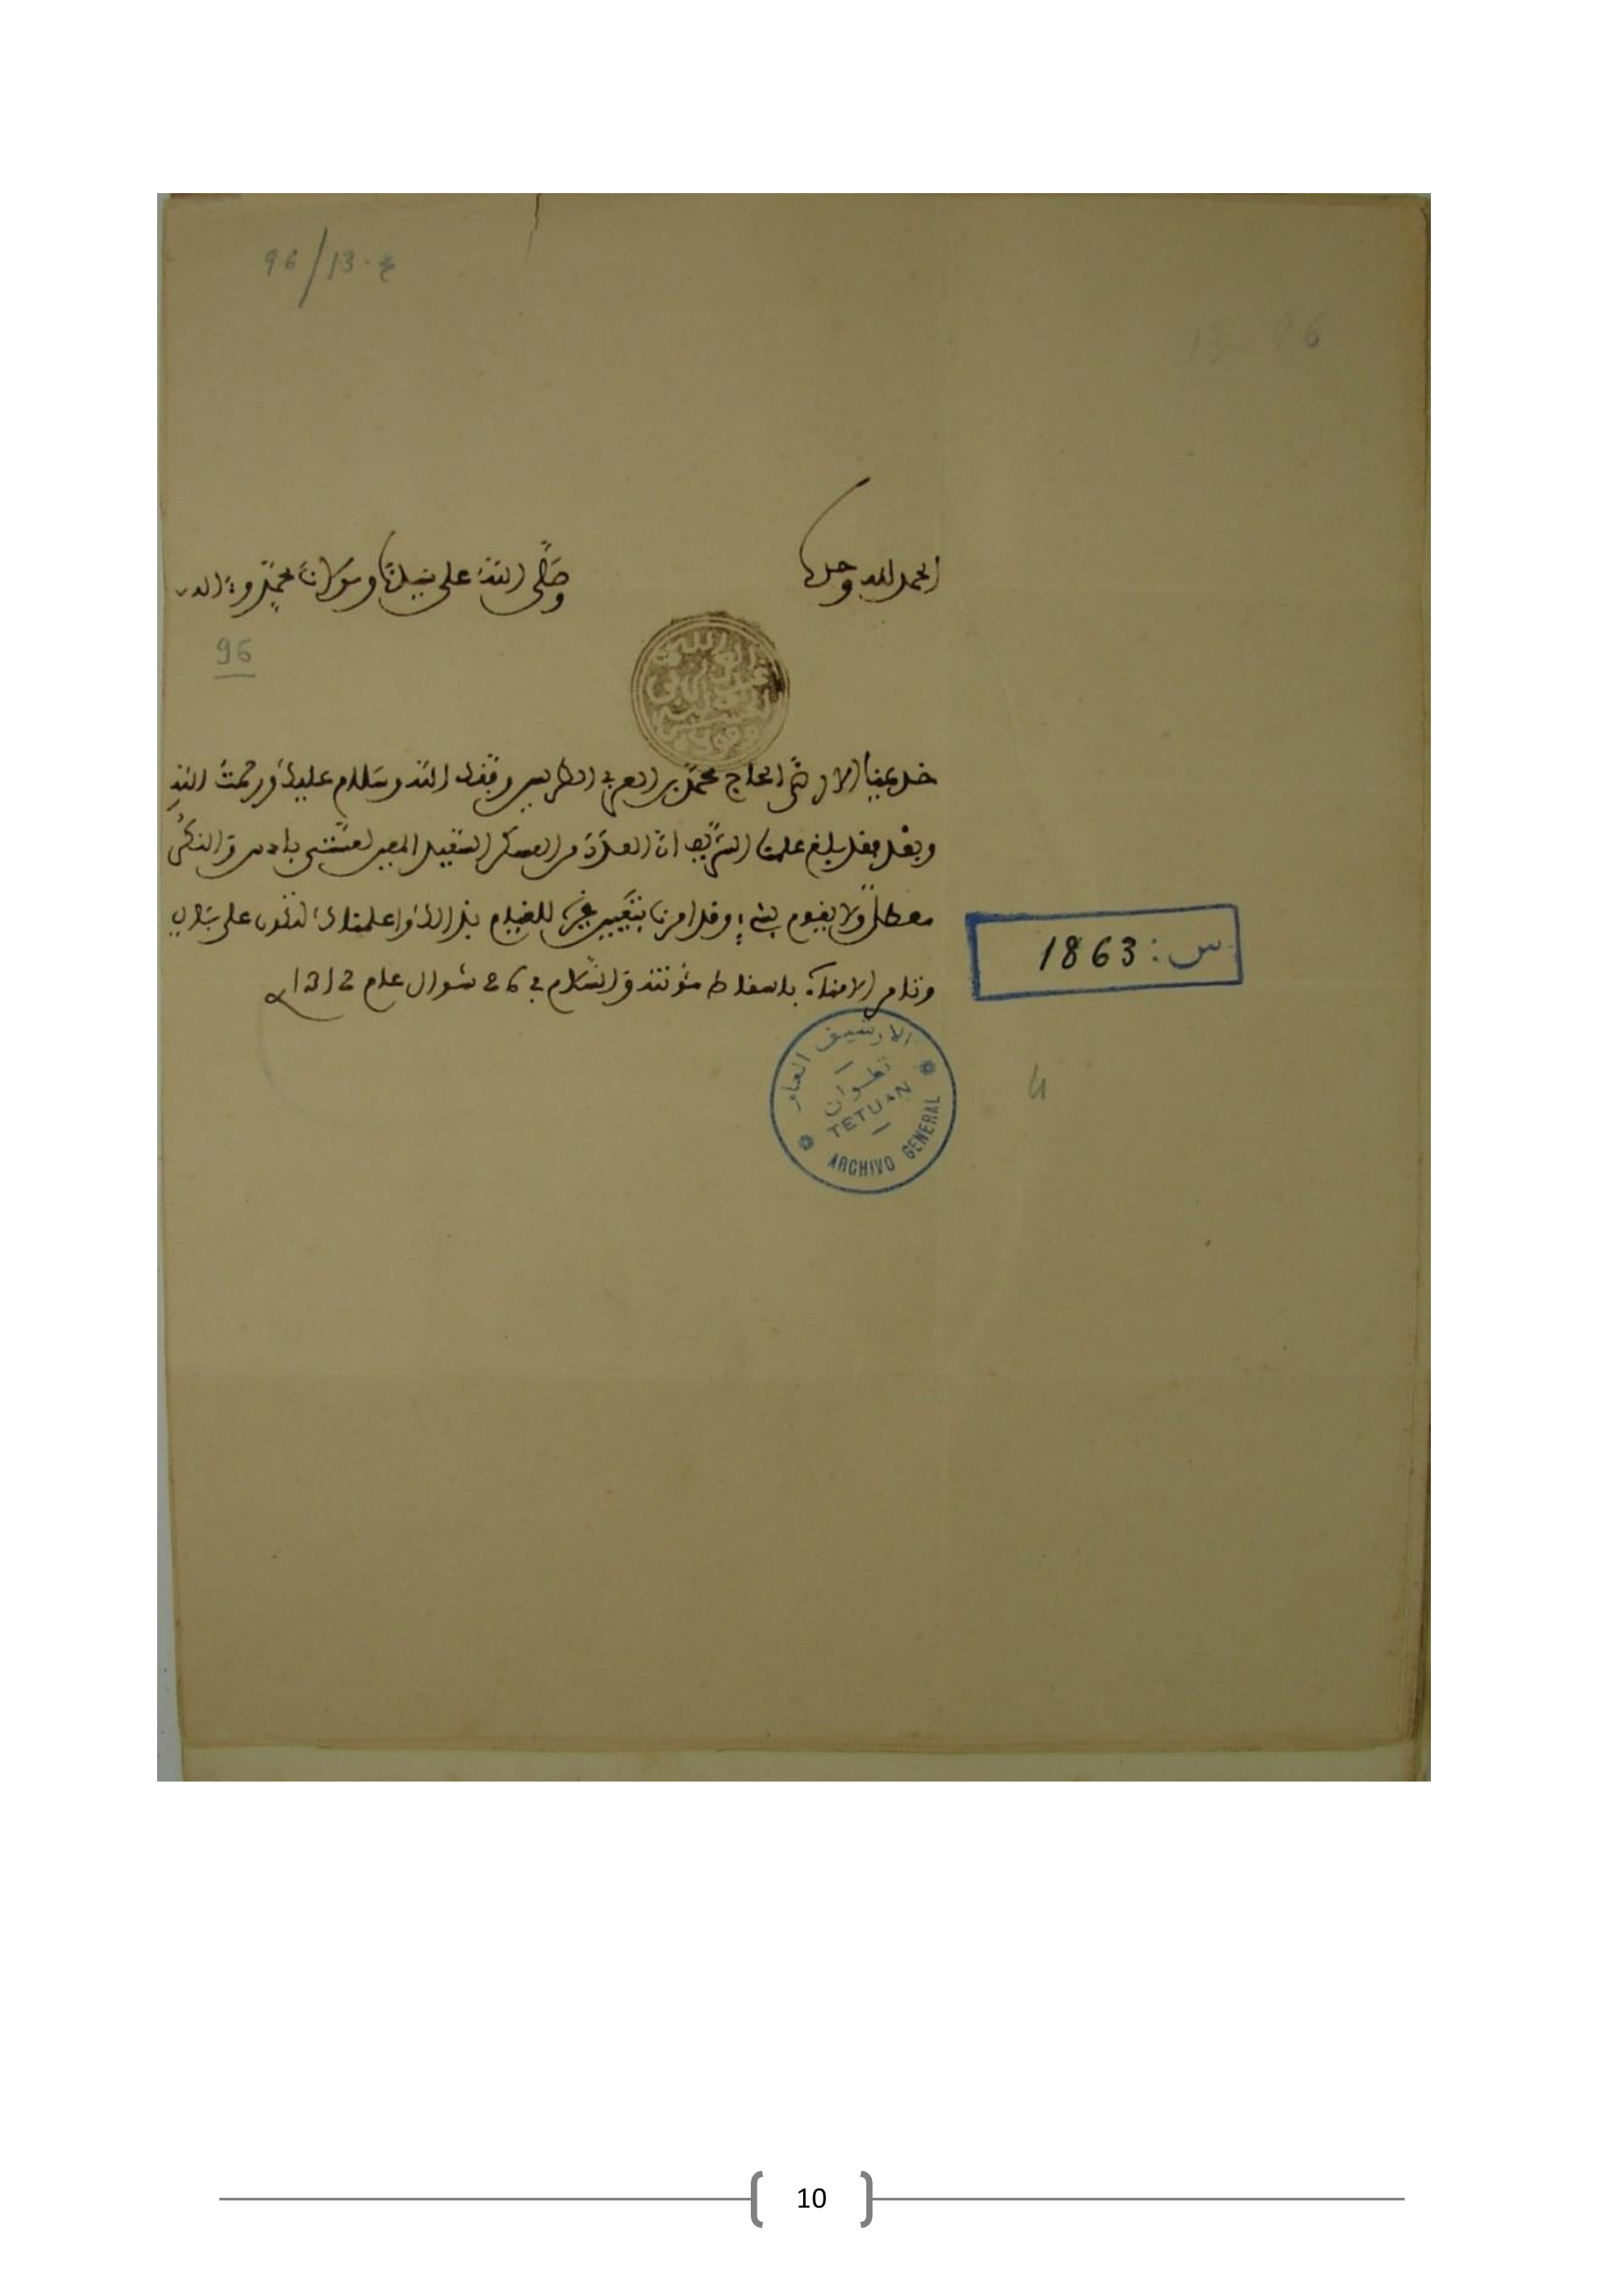 96/13.ع
13-96
الحمد لله وحده
وصلى الله على سيدنا ومولانا محمد وءاله
96
خديمنا الارضى الحاج محمد بن العربي الطريس وفقك الله وسلام عليك ورحمت الله
وبعد فقد بلغ علمنا الشريف ان العدة من العسكر السعيد المعين لعسة بادس والنكر
معطل ولا يقوم بشيء وقد امرنا بتعيين غيره للقيام بذالك واعلمناك لتكون على بال
وتامر الامناء باسقاط مئونته والسلام في 26 شوال عام 1312
س: 1863
الارشيف العام
تطوان
TETUAN
ARCHIVO GENERAL
10